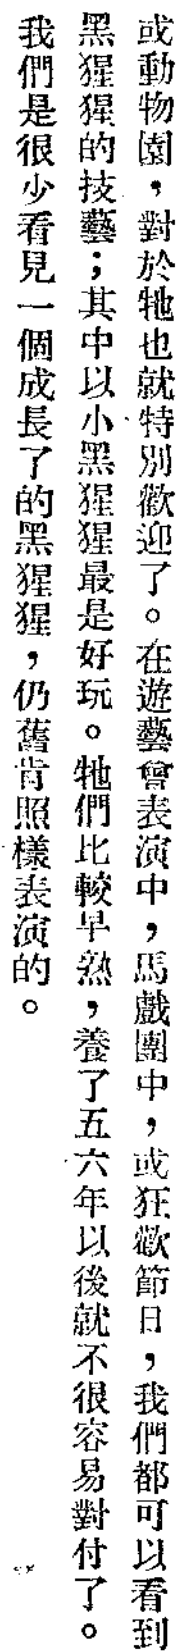 或動物園，對於牠也就特別歡迎了。在遊藝會表演中，馬戲團中，或狂歡節日，我們都可以看到
黑猩猩的技藝；其中以小黑猩猩最是好玩。牠們比較早熟，養了五六年以後就不很容易對付了。
我們是很少看見一個成長了的黑猩猩，仍舊肯照樣表演的。